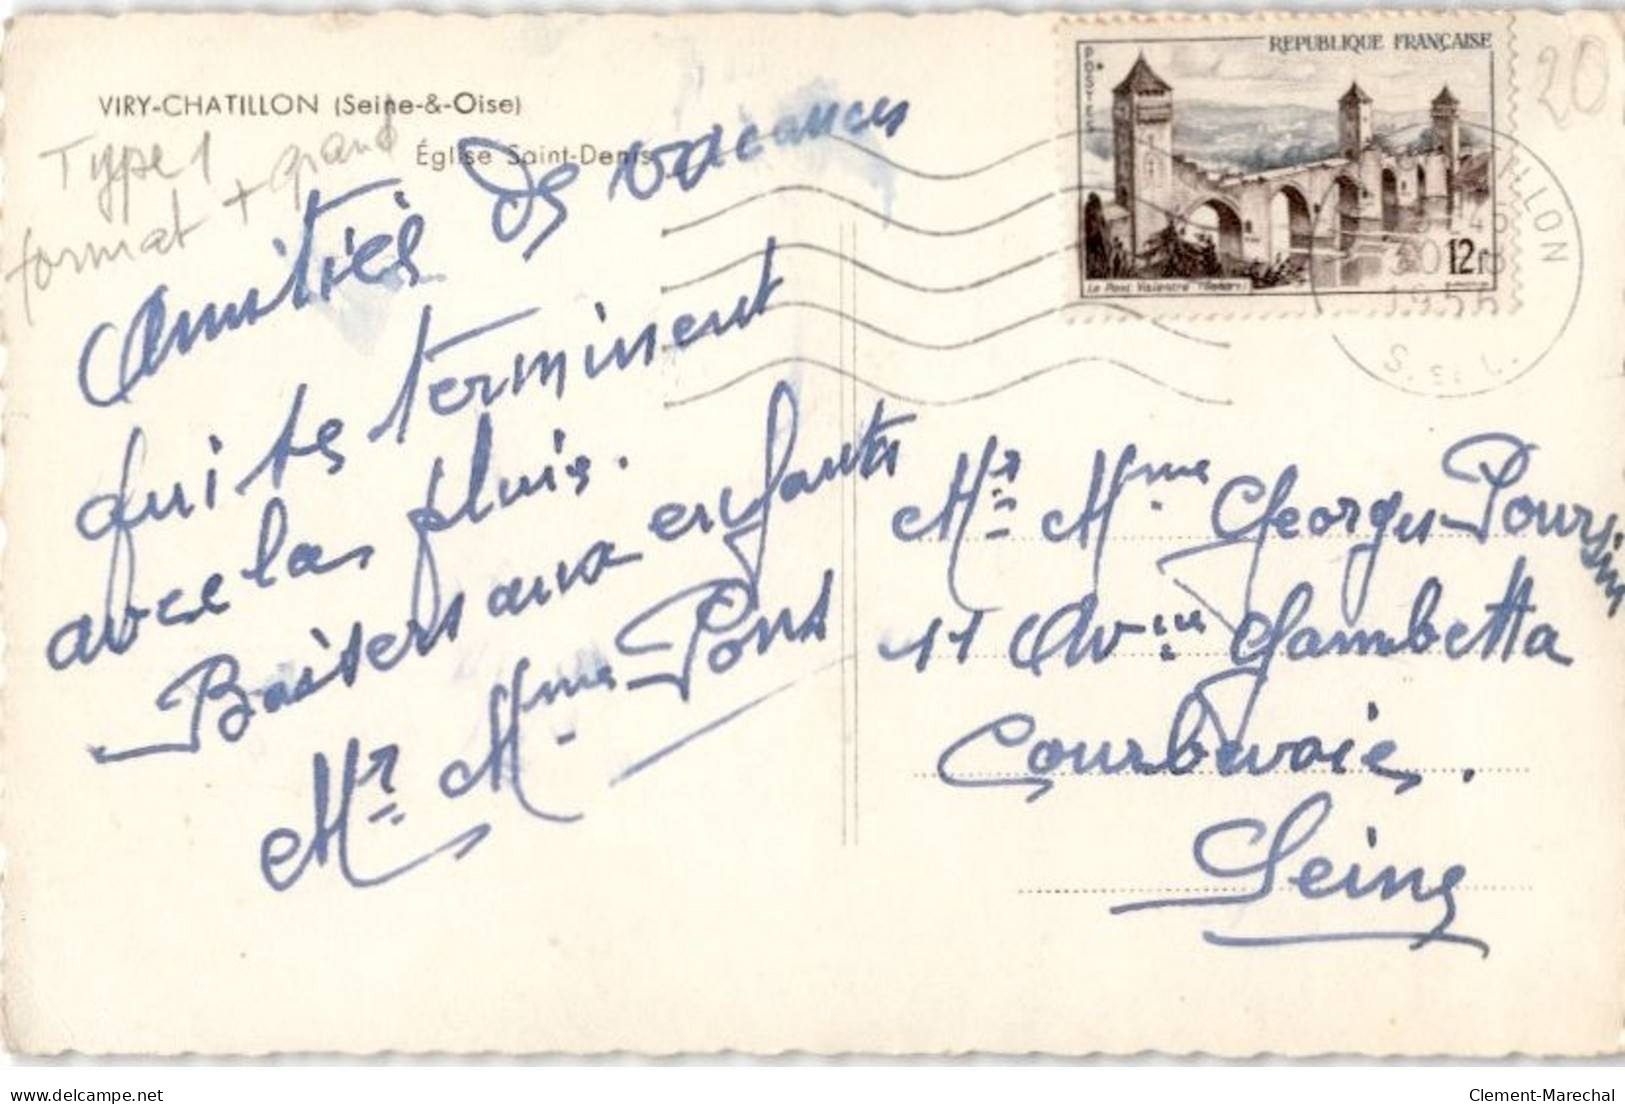 VIRY-CHATILLON (Seine-&-Oise)
Église Saint-Denis
Type 1
format + grand
Amitiés de vacances
qui se terminent
avec la pluie.
Baisers aux enfants
Mr Mme Pons
REPUBLIQUE FRANÇAISE
POSTES
Le Pont Valentré (Cahors)
12F
20
1955
Mr Mme Georges Poursin
11 Avnue Gambetta
Courbevoie.
Seine
delcampe.net
Clement-Marechal